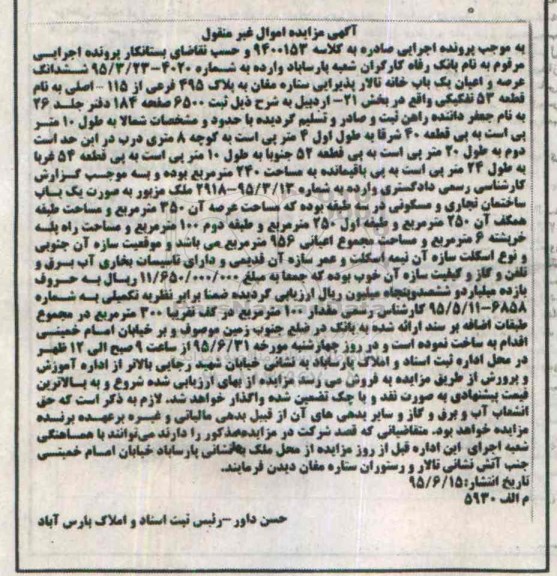 آگهی مزایده اموال غیر منقول
به موجب پرونده اجرایی صادره به کلاسه ۹۴۰۰۱۵۳ و حسب تقاضای بستانکار پرونده اجرایی
مرقوم به نام بانک رفاه کارگران شعبه پارساباد وارده به شماره ۴۰۲۰-۹۵/۳/۲۳ ششدانگ
عرصه و اعیان یک باب خانه تالار پذیرایی ستاره مغان به پلاک ۴۹۵ فرعی از ۱۱۵- اصلی به نام
قطعه ۵۳ تفکیکی واقع در بخش ۲۱- اردبیل به شرح ذیل ثبت ۶۵۰۰ صفحه ۱۸۴ دفتر جلد ۲۶
به نام جعفر داننده راهن ثبت و صادر و تسلیم گردیده با حدود و مشخصات شمالا به طول ۱۰ متر
پی است به پی قطعه ۴۰ شرقا به طول اول ۴ متر پی است به کوچه ۸ متری درب در این حد است
دوم به طول ۲۰ متر پی است به پی قطعه ۵۲ جنوبا به طول ۱۰ متر پی است به پی قطعه ۵۴ غربا
به طول ۲۴ متر پی است به پی باقیمانده به مساحت ۲۴۰ مترمربع بوده و بسه موجسب گزارش
کارشناسی رسمی دادگستری وارده به شماره ۲۹۱۸-۹۵/۳/۱۳ ملک مزبور به صورت یک باب
ساختمان تجاری و مسکونی در سه طبقه بوده که مساحت عرصه آن ۳۵۰ مترمربع و مساحت طبقه
همکف آن ۲۵۰ مترمربع و طبقه اول ۲۵۰ مترمربع و طبقه دوم ۱۰۰ مترمربع و مساحت راه پله
خرپشته ۶ مترمربع و مساحت مجموع اعیانی ۹۵۶ مترمربع می باشد و موقعیت سازه آن جنوبی
و نوع اسکلت سازه آن نیمه اسکلت و عمر سازه آن قدیمی و دارای تاسیسات بخاری آب برق و
تلفن و گاز و کیفیت سازه آن خوب بوده که جمعا به مبلغ ۱۱/۶۵۰/۰۰۰/۰۰۰ ریال به حروف
یازده میلیاردو ششصدوپنجاه میلیون ریال ارزیابی گردیده ضمنا برابر نظریه تکمیلی به شماره
۶۸۵۸-۹۵/۵/۱۱ کارشناس رسمی مقدار ۱۰۰ مترمربع در کف تقریبا ۳۰۰ مترمربع در مجموع
طبقات اضافه بر سند ارائه شده به بانک در ضلع جنوب زمین موصوف و بر خیابان امام خمینی
اقدام به ساخت نموده است و در روز چهارشنبه مورخه ۹۵/۶/۳۱ از ساعت ۹ صبح الی ۱۲ ظهر
در محل اداره ثبت اسناد و املاک پارساباد به نشانی خیابان شهید رجایی بالاتر از اداره آموزش
و پرورش از طریق مزایده به فروش می رسد مزایده از بهای ارزیابی شده شروع و به بالاترین
قیمت پیشنهادی به صورت نقد و با چک تضمین شده واگذار خواهد شد. لازم به ذکر است که حق
انشعاب آب و برق و گاز و سایر بدهی های آن از قبیل بدهی مالیاتی و غیره برعهده برنده
مزایده خواهد بود. متقاضیانی که قصد شرکت در مزایده مذکور را دارند می‌توانند با هماهنگی
شعبه اجرای این اداره قبل از روز مزایده از محل ملک به نشانی پارساباد خیابان امام خمینی
جنب آتش نشانی تالار و رستوران ستاره مغان دیدن فرمایند.
تاریخ انتشار: ۹۵/۶/۱۵
م الف ۵۹۳۰
حسن داور-رئیس ثبت اسناد و املاک پارس آباد